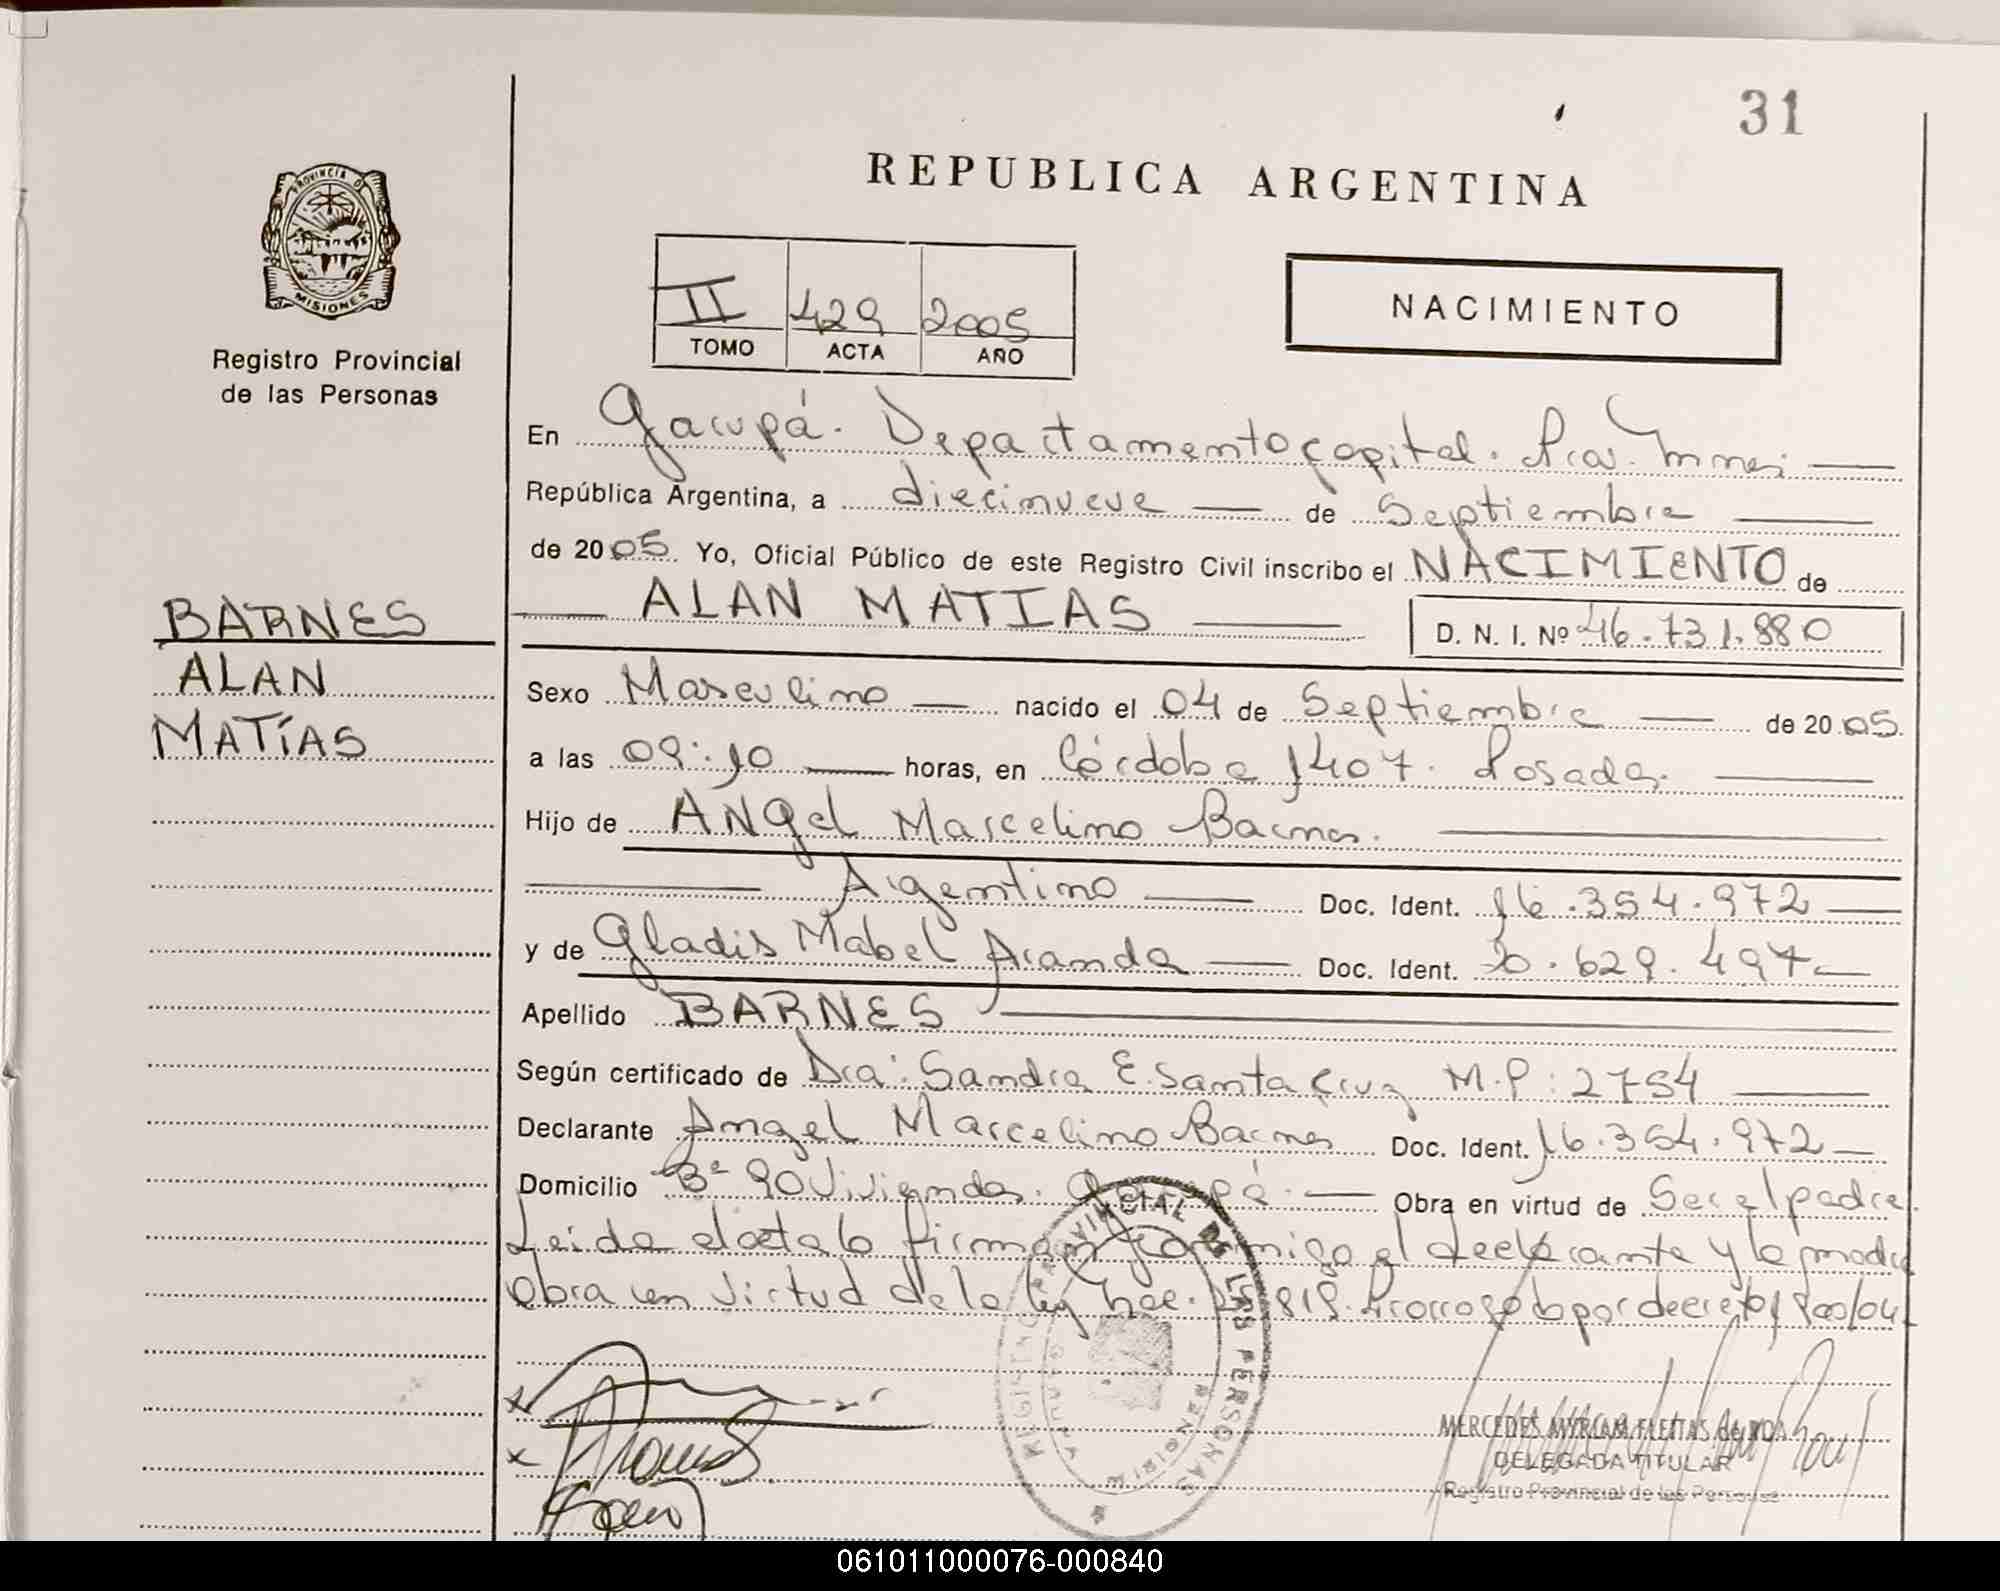 31
REPUBLICA ARGENTINA
PROVINCIA D
MISIONES
Registro Provincial
de las Personas
II 429 2005
TOMO ACTA AÑO
NACIMIENTO
En Garupá. Departamento Capital. Prov. Mnes
República Argentina, a diecinueve de Septiembre
de 2005. Yo, Oficial Público de este Registro Civil inscribo el NACIMIENTO de
ALAN MATIAS D. N. I. Nº 46.731.880
BARNES
ALAN
MATÍAS
Sexo Masculino nacido el 04 de Septiembre de 2005.
a las 09:10 horas, en Córdoba 1407. Posadas.
Hijo de ANgel Marcelino Barnes.
Argentino Doc. Ident. 16.354.972
y de Gladis Mabel Aranda Doc. Ident. 20.629.497
Apellido BARNES
Según certificado de Dra: Sandra E. Santa Cruz M.P: 2754
Declarante Angel Marcelino Barnes Doc. Ident. 16.354.972
Domicilio Bº 90 Viviendas. Garupá. Obra en virtud de Ser el padre.
Leida el acta la firman conmigo el declarante y la madre
Obra en virtud de la ley nac. 819. Prorrogado por decreto
REGISTRO PROVINCIAL DE LAS PERSONAS
MERCEDES MYRIAM FREITAS de
DELEGADA TITULAR
Registro Provincial de las Personas
061011000076-000840